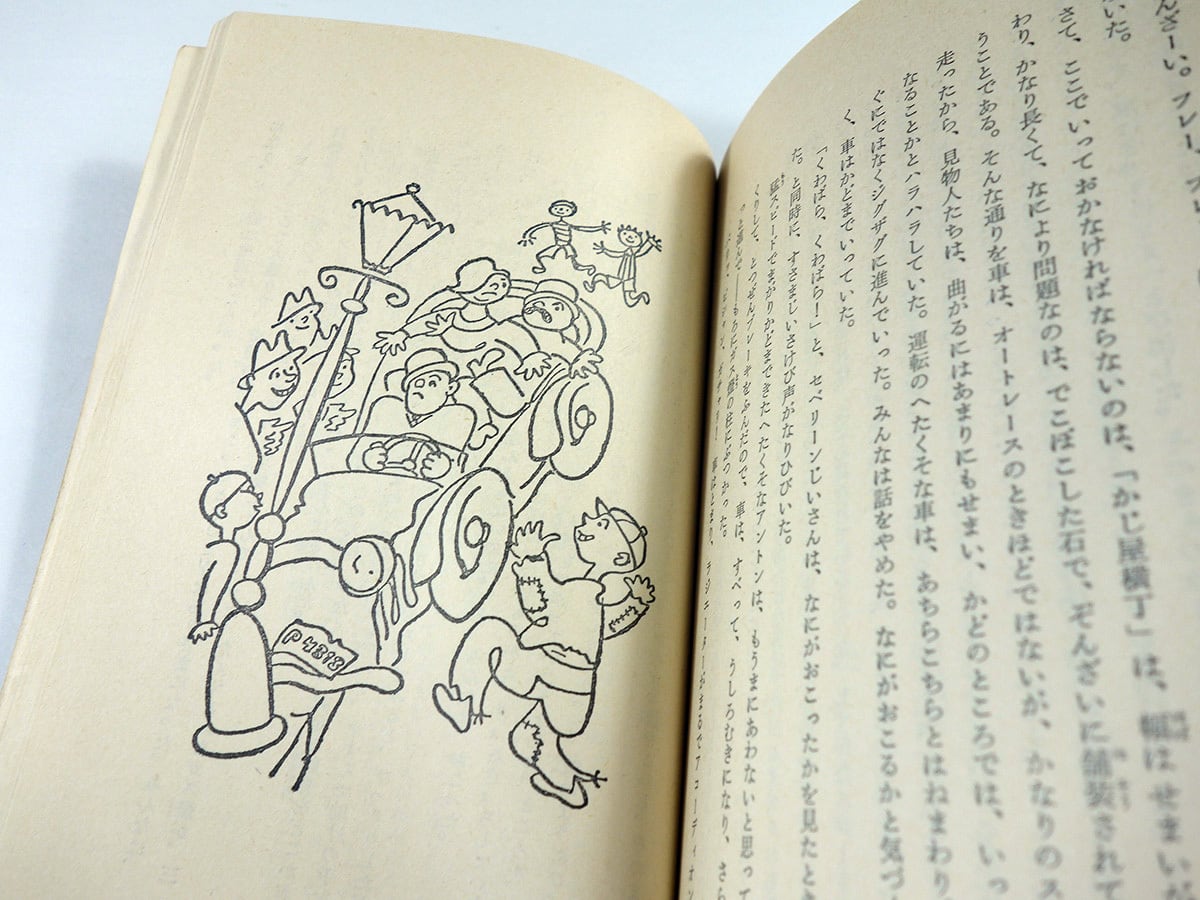 んざーい。フレー、
いた。
さて、ここでいっておかなければならないのは、「かじ屋横丁」は、幅はせまいが
わり、かなり長くて、なにより問題なのは、でこぼこした石で、ぞんざいに舗装されて
うことである。そんな通りを車は、オートレースのときほどではないが、かなりのス
走ったから、見物人たちは、曲がるにはあまりにもせまい、かどのところでは、いっ
なることかとハラハラしていた。運転のへたくそな車は、あちらこちらとはねまわり
ぐにではなくジグザグに進んでいった。みんなは話をやめた。なにがおこるかと気づ
く、車はかどまでいっていた。
「くわばら、くわばら！」と、セベリーンじいさんは、なにがおこったかを見たとき
た。と同時に、すさまじいさけび声がなりひびいた。
猛スピードでまがりかどまできたへたくそなアントンは、もうまにあわないと思って
くりして、とつぜんブレーキをふんだので、車は、すべって、うしろむきになり、さら
っと進んで――もろにガス燈の柱にぶつかった。
車はとまり、ラジエーターがまるでアコーディオン